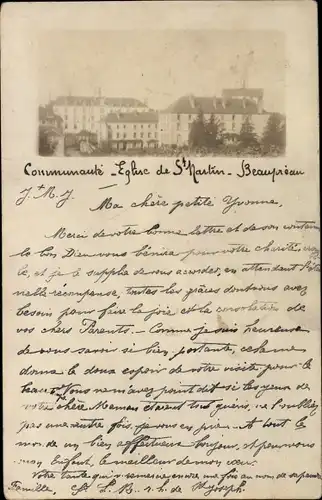 Communauté - Eglise de St Martin - Beaupréau
J. + M. J.
Ma chère petite Yvonne,
Merci de votre bonne lettre et de son
le bon Dieu vous bénira pour votre charité,
et je le supplie de vous accorder, en attendant
nelle récompense, toutes les grâces dont vous avez
besoin pour faire la joie et la consolation de
vos chers Parents. - Comme je suis heureuse
de vous savoir si bien portante, cela me
donne le doux espoir de votre visite pour le
beau Vous ne m'avez point dit si les yeux de
votre chère Maman étaient tout guéris, ne l'oubliez
pas une autre fois, je vous en prie. A tout le
monde un bien affectueux bonjour, et pour vous
mon Enfant, le meilleur de mon cœur.
Votre tante qui vous remercie une fois au nom de sa
Famille, St Joseph.